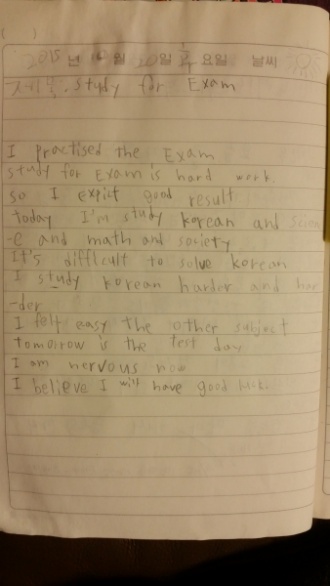 ( )
2015 년 월 20일 요일 날씨
제목: study for Exam
I practised the Exam
study for Exam is hard work.
so I expict good result
today I'm study korean and Scienc
-e and math and society
It's difficult to solve korean
I study korean harder and har
-der
I felt easy the other subject
tomorrow is the test day
I am nervous now
I believe I will have good luck.